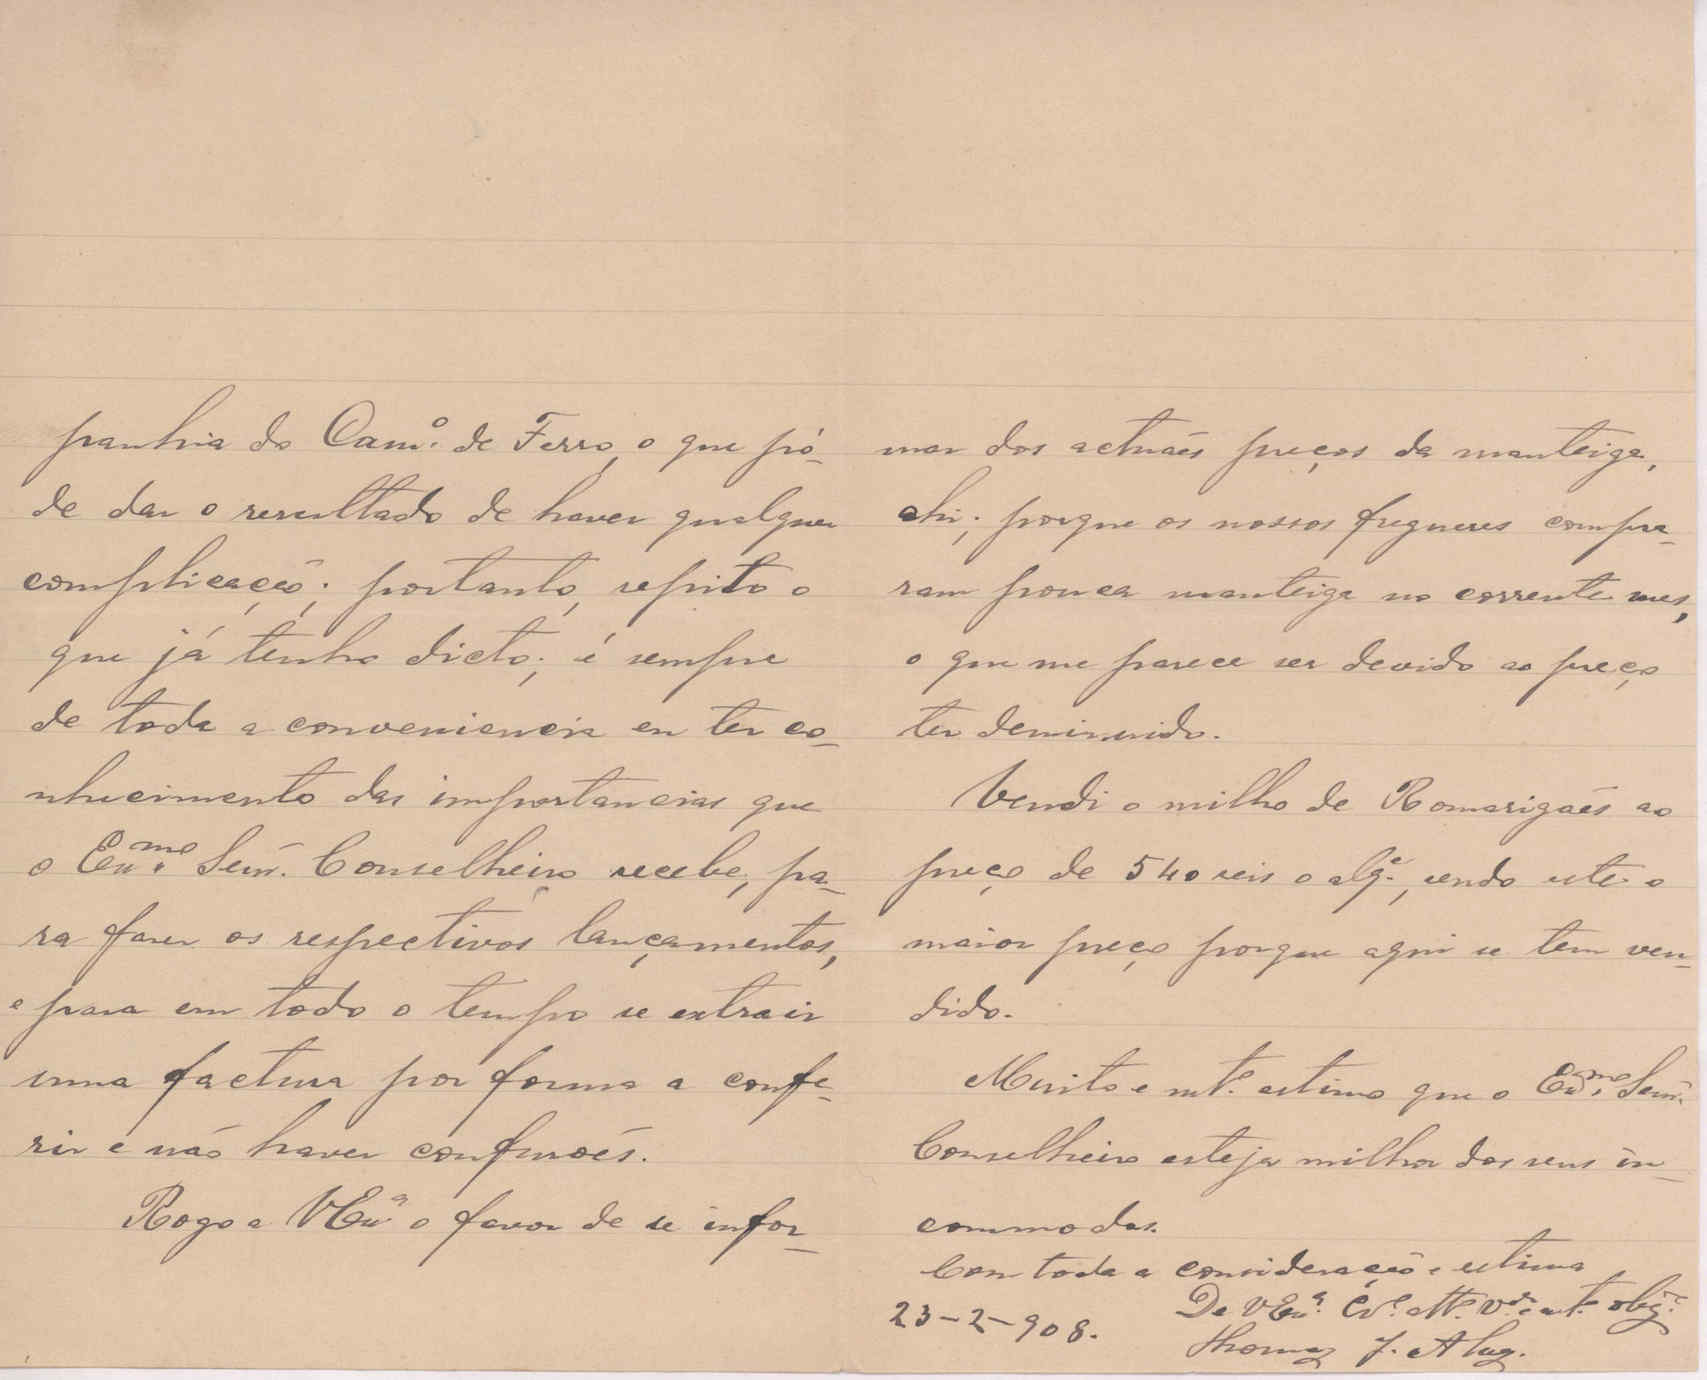 panhia do Cam.º de Ferro, o que pó-
de dar o resultado de haver qualquer
complicação; portanto, repito o
que já tenho dicto; é sempre
de toda a conveniencia eu ter co-
nhecimento das importancias que
o Ex.mo Senr. Conselheiro recebe, pa-
ra fazer os respectivos lançamentos,
e para em todo o tempo se extrair
uma factura por forma a confe-
rir e não haver confusoēs.
Rogo a VExª o favor de se infor-
mar dos actuáes preços da manteiga,
ahi; porque os nossos freguezes compra-
ram pouca manteiga no corrente mes,
o que me parece ser devido ao preço
ter deminuido.
Vendi o milho de Romarigães ao
preço de 540 reis o alq.e, sendo este o
maior preço porque aqui se tem ven-
dido.
Muito e mt.º estimo que o Ex.mo Senr.
Conselheiro esteja milhor dos seus in-
commodos.
Com toda a consideração e estima
De VExª. Cr.º Att.º V.or e mt.º obg.º
23-2-908.
Thomaz J. A